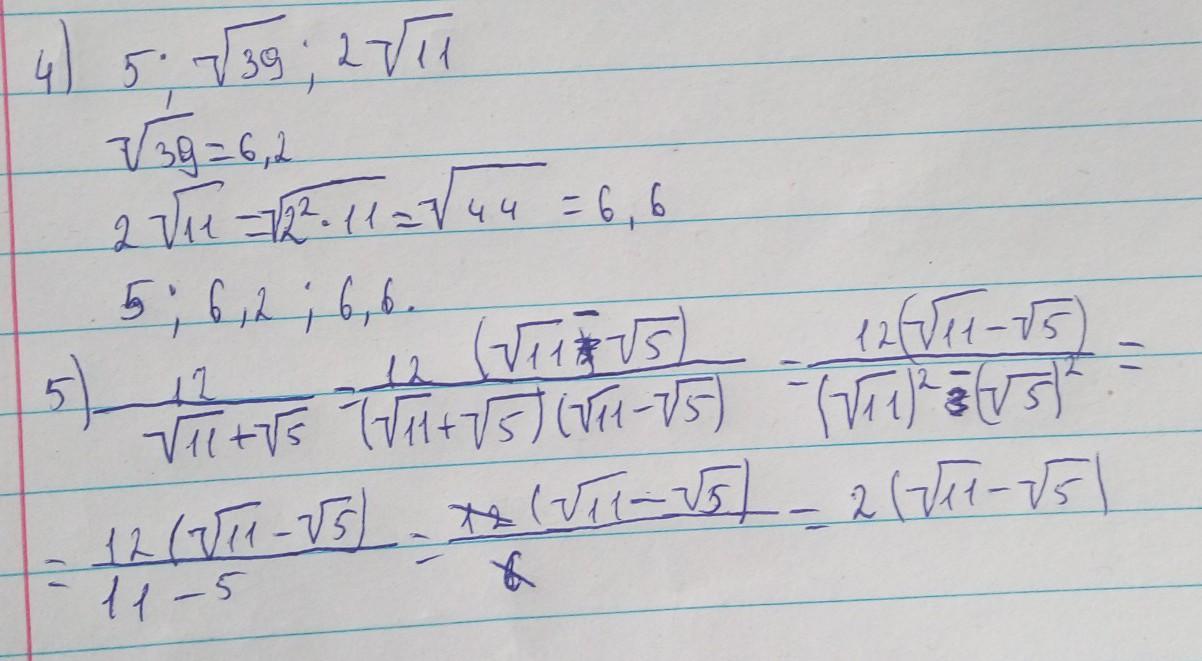 4) 5; √39; 2√11
√39 = 6,2
2√11 = √2²·11 = √44 = 6,6
5; 6,2; 6,6.
5) 12/(√11+√5) = 12(√11-√5)/((√11+√5)(√11-√5)) = 12(√11-√5)/((√11)²-(√5)²) =
= 12(√11-√5)/(11-5) = 12(√11-√5)/6 = 2(√11-√5)